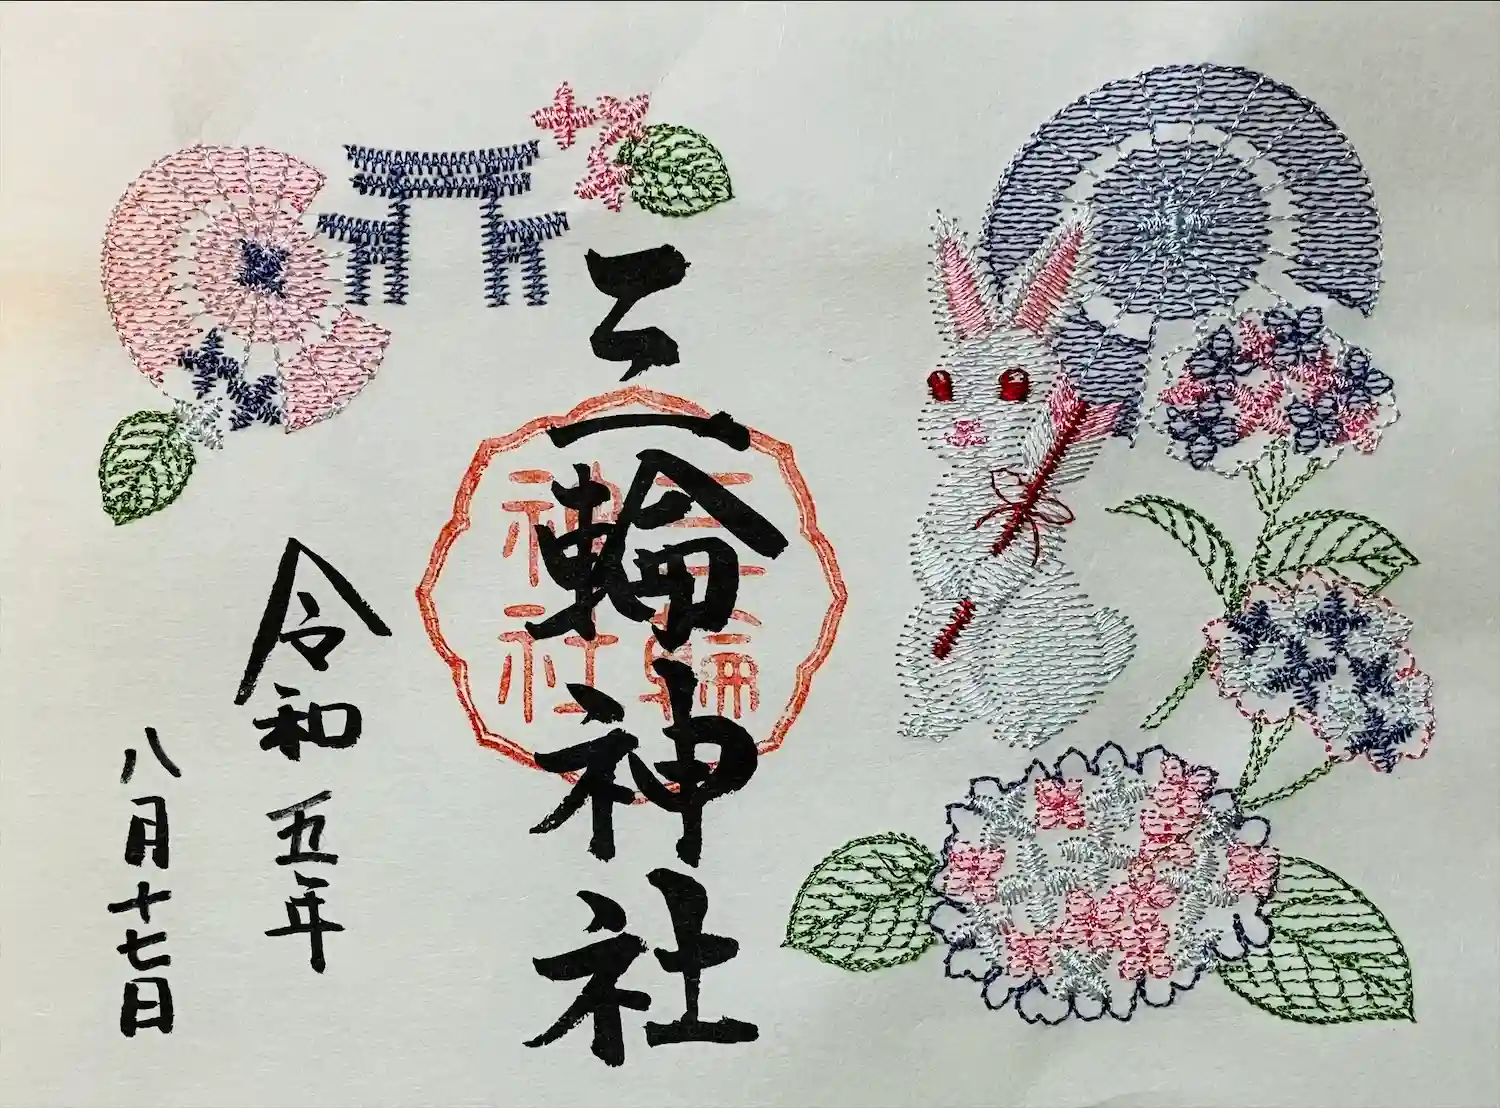 三輪神社
令和五年
八月十七日
三輪
神社